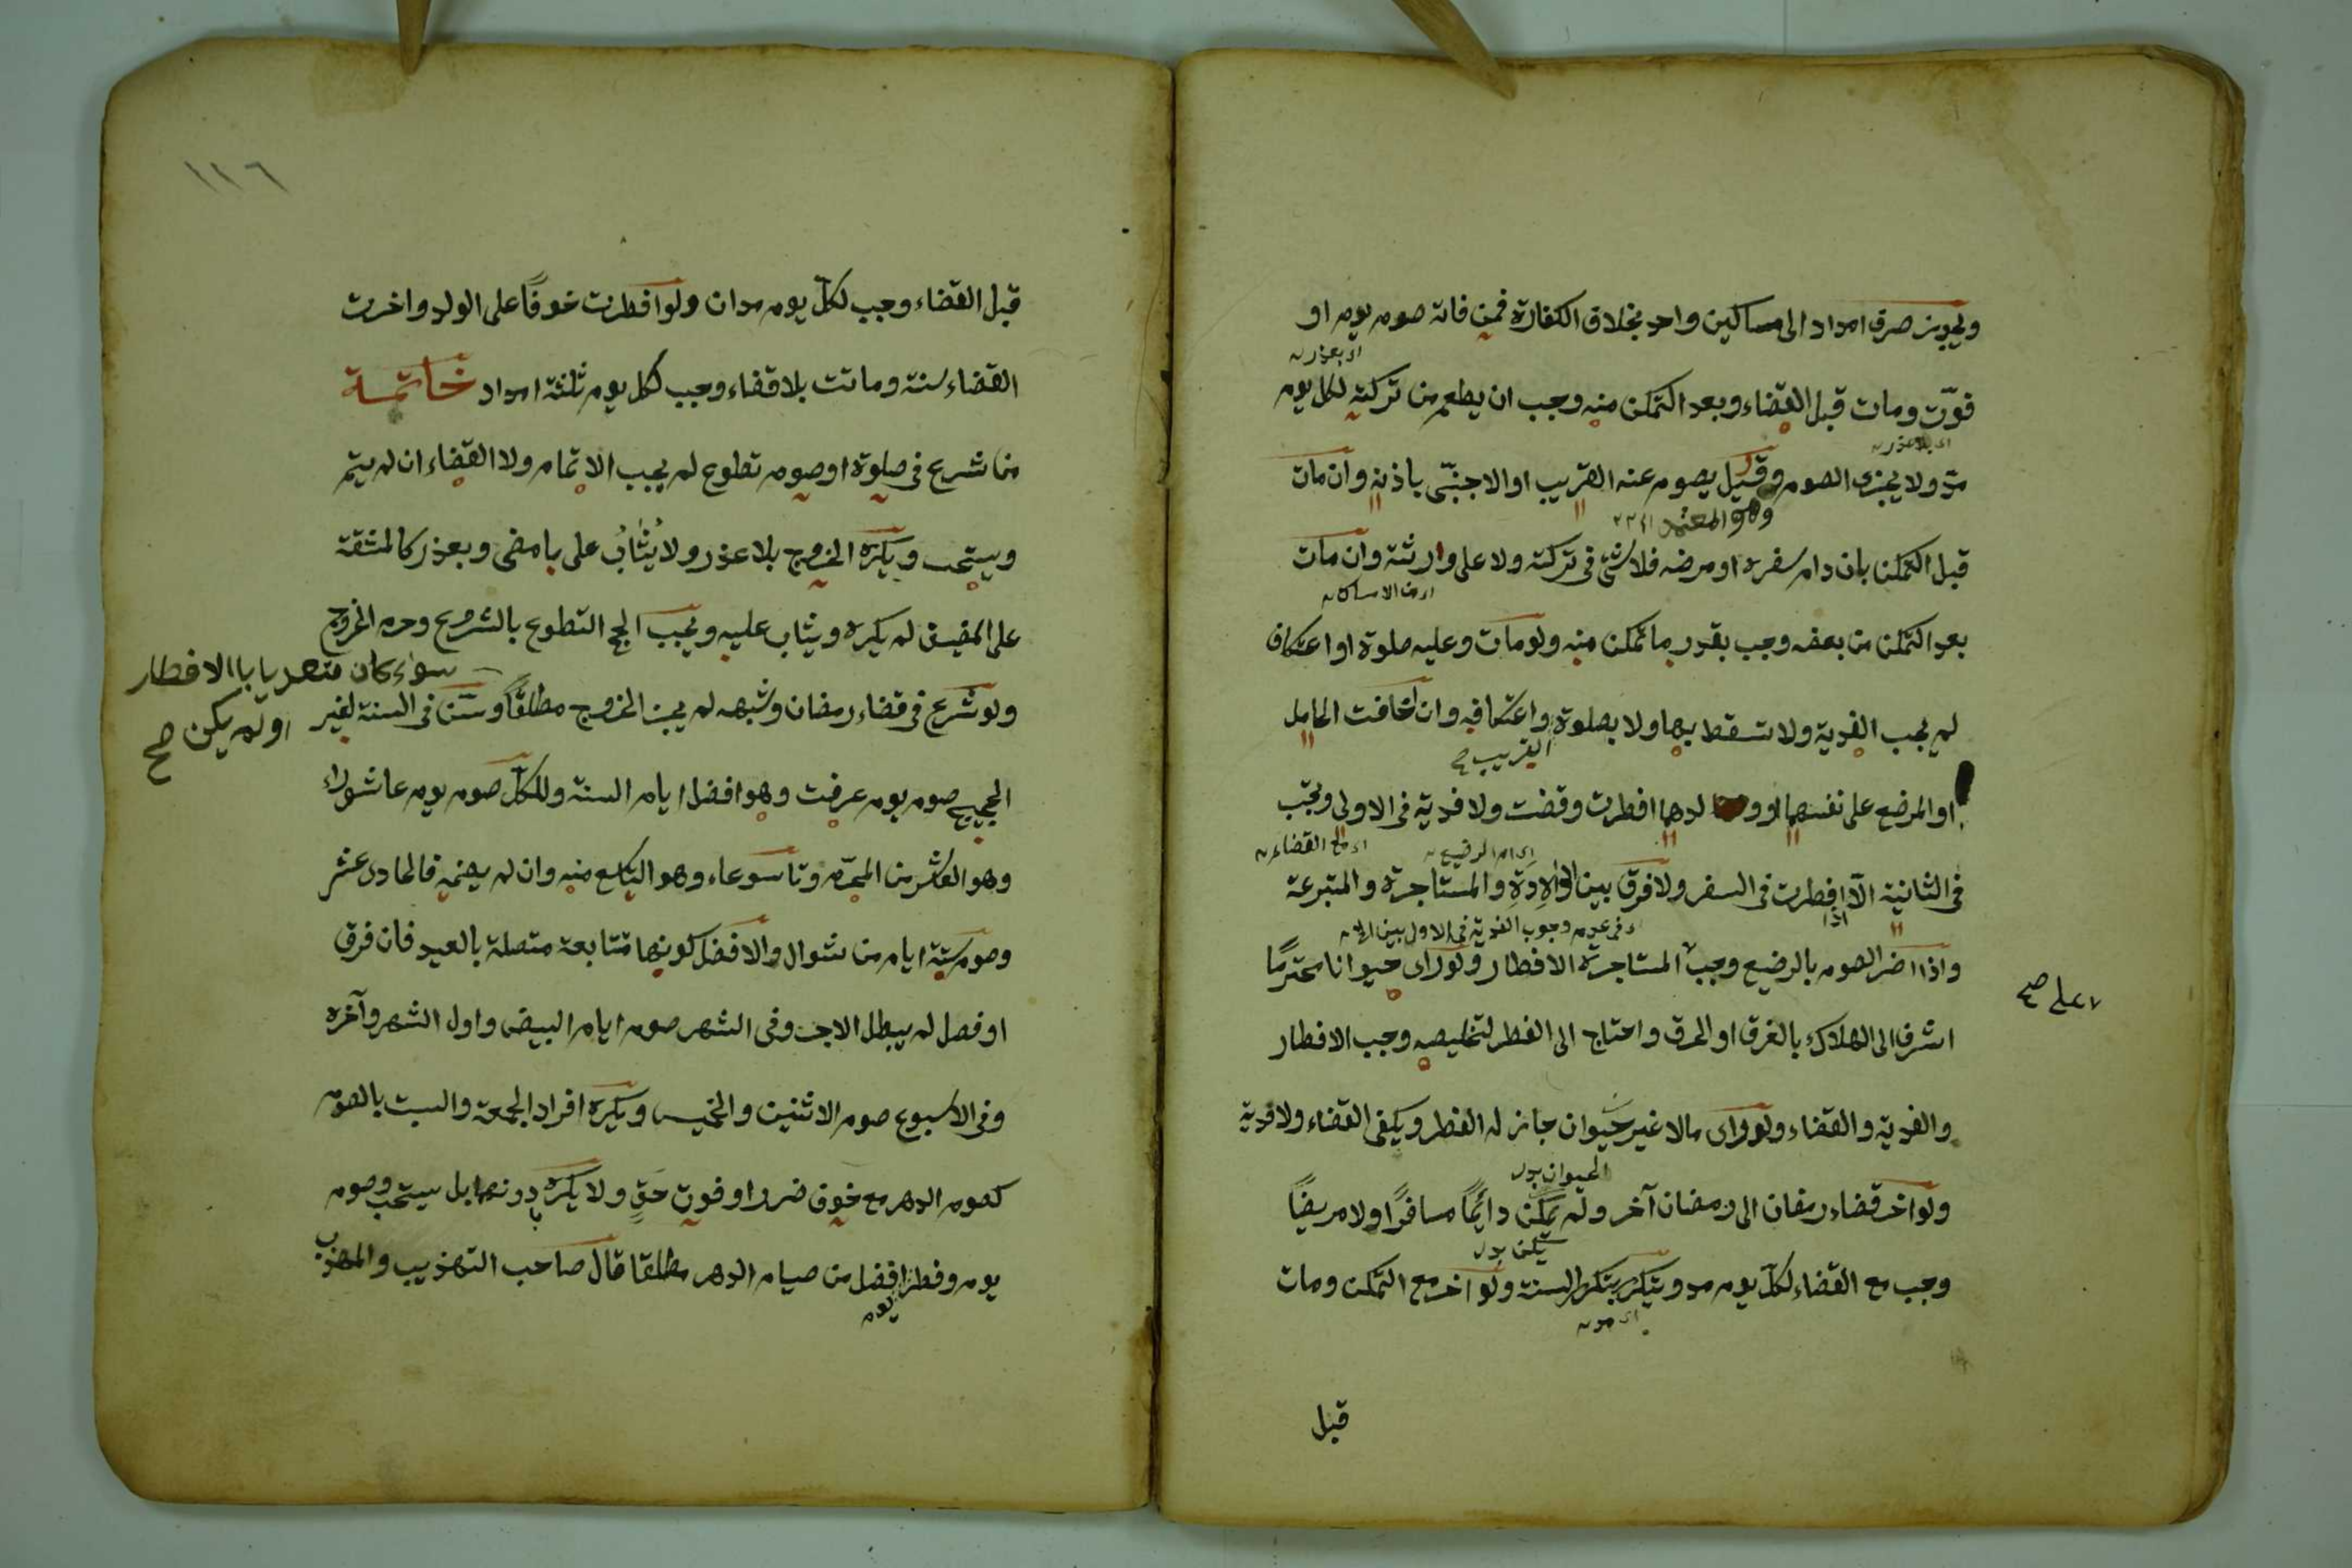 ويجوز صرف امداد الى مساكين واحد بخلاف الكفارة فمن فاته صوم يوم او
اى بعذر
فوّت ومات قبل القضاء وبعد التمكن منه وجب ان يطعم من تركته لكل يوم
اى بلا عذر
مدّ ولا يجزى الصوم وقيل يصوم عنه القريب او الاجنبّى باذنه وان مات
وهو المعتمد
قبل التمكن بان دام سفره او مرضه فلا شئ فى تركته ولا على وارثته وان مات
بعد التمكن من بعضه وجب بقدر ما تمكن منه ولو مات وعليه صلوة او اعتكاف
لم يجب الفدية ولا تسقط بها ولا بصلوة واعتكافه وان خافت الحامل
القريب صح
او المرضع على نفسهما او ولدهما افطرت وقضت ولا فدية فى الاولى وتجب
اى مع القضاء
اى ام الرضيع
فى الثانية الا افطرت فى السفر ولا فرق بين الوالِدَةِ والمستاجرة والمتبرعة
اذا
فى عدم وجوب الفدية فى الاول بين
واذا اضر الصوم بالرضيع وجب المستاجرة الافطار ولو راى حيوانا محترمًا
على صح
اشرف الى الهلاك بالغرق او الحرق واحتاج الى الفطر لتخليصه وجب الافطار
والفدية والقضاء ولو راى مالا غير حيوان جاز له الفطر ويكفى القضاء ولا فدية
الحيوان بدل
ولو اخر قضاء رمضان الى رمضان آخر ولم يمكن دائمًا مسافرًا ولا مريضًا
يكن بدل
وجب مع القضاء لكل يوم مد ويتكرر بتكرر السنة ولو اخر مع التمكن ومات
اى مد
قبل
١٢٦
قبل القضاء وجب لكلّ يوم مدان ولو افطرت خوفًا على الولد واخرت
القضاء سنة وماتت بلا قضاء وجب لكل يوم ثلثة امداد خاتمة
من شرع فى صلوة او صوم تطوع لم يجب الاتمام ولا القضاء ان لم يتم
ويستحب ويكره الخروج بلا عذر ولا يُثابُ على ما مضى وبعذر كالمشقة
على المضيف لم يكره ويثاب عليه ويجب الحج التطوع بالشروع وحرم الخروج
سواء كان متعديا با الافطار
او لم يكن صح
ولو شرع فى قضاء رمضان وشبهه لم يجز الخروج مطلقًا وسنّ فى السنة لغير
الحجيج صوم يوم عرفت وهو افضل ايام السنة وللكلّ صوم يوم عاشوراء
وهو العاشر من المحرّم وتاسوعاء وهو التاسع منه وان لم يصمه فالحادى عشر
وصوم ستة ايام من شوال والافضل كونها متتابعة متصلة بالعيد فان فرق
او فصل لم يبطل الاجر وفى الشهر صوم ايام البيض واول الشهر وآخره
وفى الاسبوع صوم الاثنين والخميس ويكره افراد الجمعة والسبت بالصوم
كصوم الدهر مع خوف ضرر او فوت حَقٍ ولا يكره دونهما بل يستحب وصوم
يوم وفطر افضل من صيام الدهر مطلقا قال صاحب التهذيب والمهذب
يوم